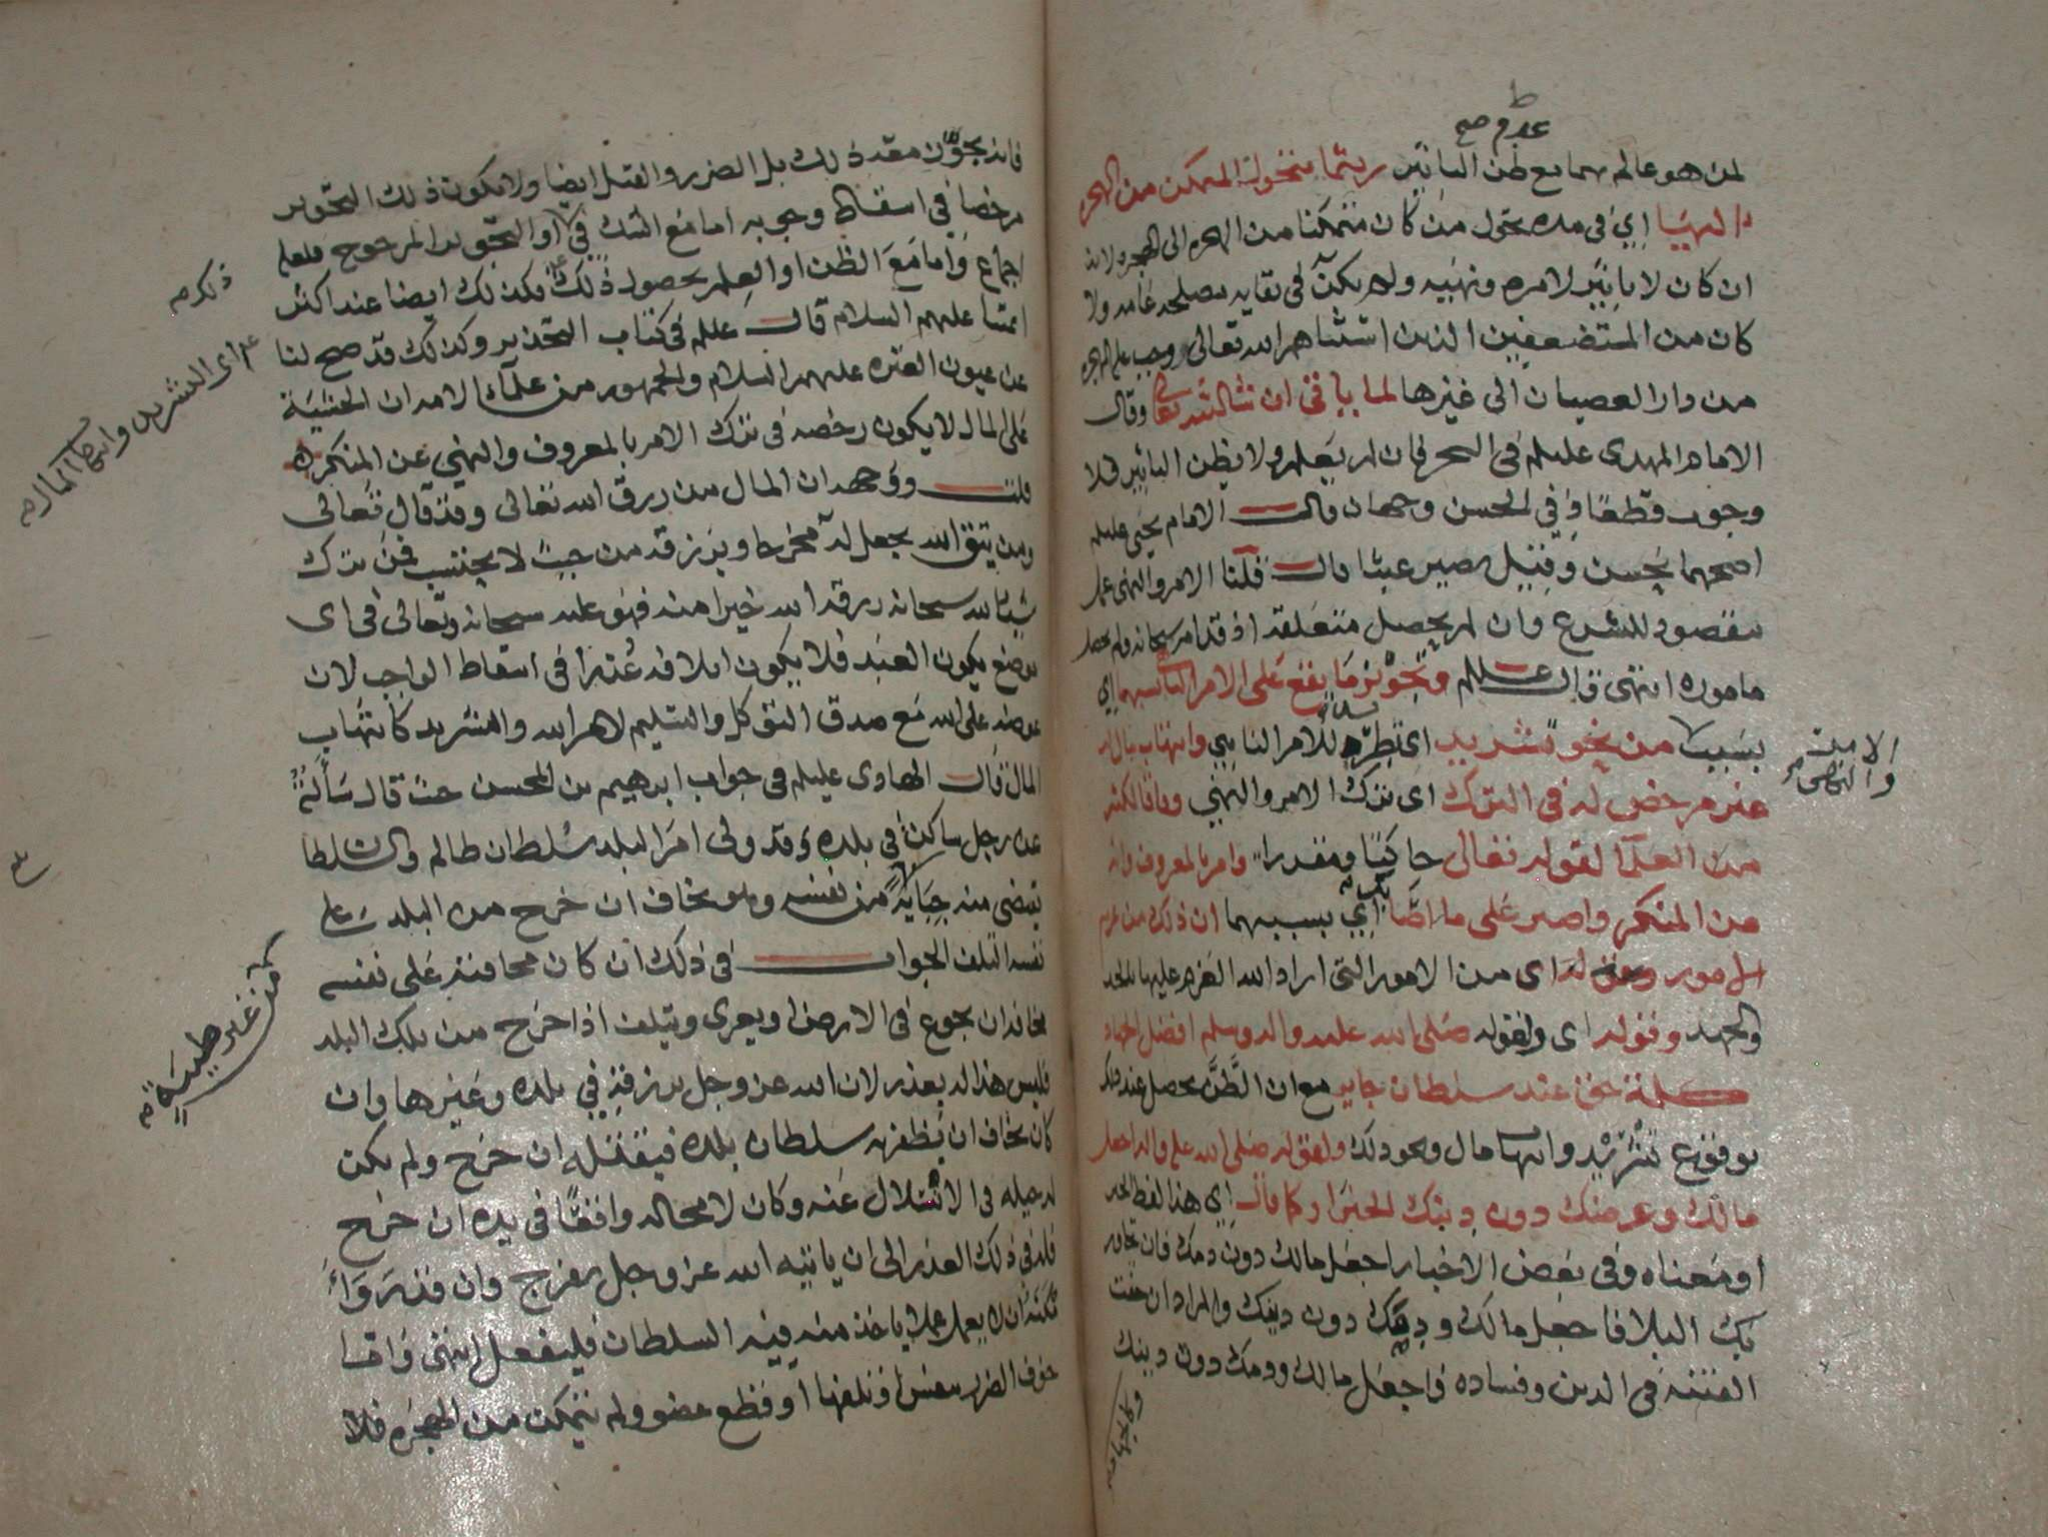 عدم صح
لمن هو عالم بهما مع ظن التاثير ريثما يتحول المتمكن من الهجرة
اليها اي في مدة يتحول من كان متمكنا من الهجرة الى الهجرة لانه
ان كان لا تاثير لامره ونهيه ولم يكن في بقايه مصلحة عامة ولا
كان من المستضعفين الذين استثناهم الله تعالى وجب عليه الهجرة
من دار العصيان الى غيرها لما ياتي ان شا الله تعالى وقال
الامام المهدي عليلم في البحر فان لم يعلم ولا يظن التاثير فلا
وجوب قطعا وفي الحسن وجهان قال الامام يحيى عليلم
اصحهما يحسن وقيل يصير عبثا قال قلنا الامر والنهي
مقصود للشرع وان لم يحصل متعلقه اذ قد امر سبحانه ولم يحصل
ماموره انتهى قال عليلم وتجويز ما يقع على الامر الناهي بسببهما اي
بسبب من نحو تشريد اي تطريد للامر الناهي وانتهاب مال له
الامر والنهي
غير مرخص له في الترك اي ترك الامر والنهي وفاقا لكثير
من العلما لقوله تعالى حاكيا ومقدرا وامر بالمعروف وانه
عن المنكر واصبر على ما اصابك اي بسببهما ان ذلك من عزم
الامور وقوله اي من الامور التي اراد الله العزم عليها بالجد
والجهد وقوله اي ولقوله صلى الله عليه واله وسلم افضل الجهاد
كلمة حق عند سلطان جاير مع ان الظن يحصل عند ذلك
بوقوع تشريد وانتهاب مال ونحو ذلك ولقوله صلى الله عليه واله اجعل
مالك وعرضك دون دينك الخبر او كما قال اي هذا لفظ الخبر
او معناه وفي بعض الاخبار اجعل مالك دون دمك فان تجاوز
بك البلا فاجعل مالك ودمك دون دينك والمراد ان خفت
الفتنة في الدين وفساده فاجعل مالك ودمك دون دينك
فانه يجوز معه ذلك بل الضرر والقتل ايضا ولا يكون ذلك التجويز
مرخصا في اسقاط وجوبه اما مع الشك في او التجويز المرجوح فلعله
اجماع واما مع الظن او العلم بحصول ذلك فكذلك ايضا عند اكثر
ذلك م
ايمتنا عليهم السلام قال عليلم في كتاب التحذير وكذلك قد صح لنا
اي التشريد وانتهاب المال م
عن عيون العترة عليهم السلام والجمهور من علماء الامة ان الخشية
على المال لا يكون رخصة في ترك الامر بالمعروف والنهي عن المنكر
قلت ووجهه ان المال من رزق الله تعالى وقد قال تعالى
ومن يتق الله يجعل له مخرجا ويرزقه من حيث لا يحتسب فمن ترك
شيئا لله سبحانه رزقه الله خيرا منه فهو عليه سبحانه وتعالى في اي
موضع يكون العبد فلا يكون املاقه عذرا في اسقاط الواجب لان
عوضه على الله مع صدق التوكل والتسليم لامر الله والتشريد كانتهاب
المال قال الهادي عليلم في جواب ابرهيم بن المحسن حيث قال سألته
عن رجل ساكن في بلده وقد ولي امر البلد سلطان ظالم والسلطان
يقتضي منه جباية من نفسه وهو يخاف ان خرج من البلد على
من غير طيبة م
نفسه التلف الجواب في ذلك ان كان مخافته على نفسه
مخافة ان يجوع في الارض او يعرى ويتلف اذا خرج من تلك البلد
فليس هذا له بعذر لان الله عز وجل يرزقه في بلده وغيرها وان
كان يخاف ان يظفر به سلطان بلده فيقتله ان خرج ولم يكن
له حيلة في الانسلال عنه وكان لا محالة واقعا في يده ان خرج
فله في ذلك العذر الى ان ياتيه الله عز وجل بفرج وان قدر
يمكنه ان لا يعمل عملا ياخذ منه فيه السلطان فليفعل انتهى واما
خوف الضرر بنفس او تلفها او قطع عضو ولم يتمكن من الهجرة فلا